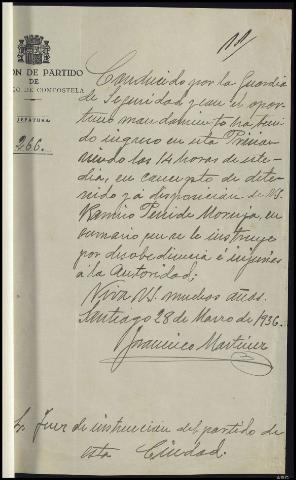 ON DE PARTIDO
DE
GO DE COMPOSTELA
JEFATURA
266.
Conducido por la Guardia
de Seguridad y con el opor-
tuno mandamiento ha teni
do ingreso en esta Prisión
siendo las 14 horas de este
dia, en concepto de dete-
nido y a disposición de V.S.
Ramiro Pereira Moreira, en
sumario que se le instruye
por desobediencia e injurias
a la Autoridad;
Viva V.S. muchos años.
Santiago 28 de Marzo de 1936.
Francisco Martinez
Sr. Juez de instruccion del partido de
esta Ciudad.